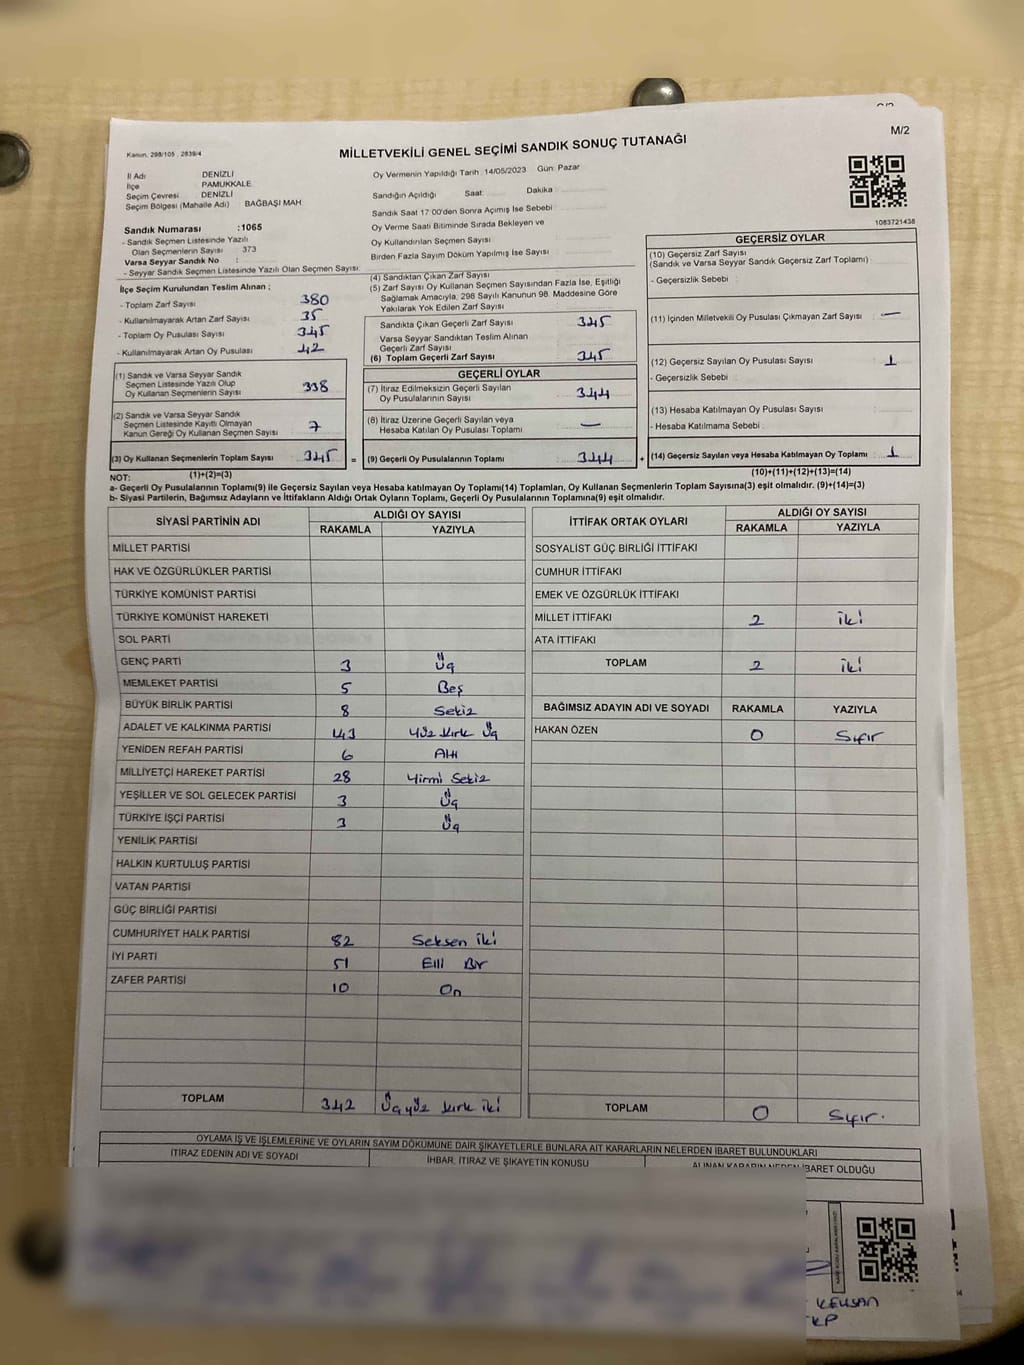 M/2
Kanun, 298/105 , 2839/4
MİLLETVEKİLİ GENEL SEÇİMİ SANDIK SONUÇ TUTANAĞI
İl Adı DENİZLİ
İlçe PAMUKKALE
Seçim Çevresi DENİZLİ
Seçim Bölgesi (Mahalle Adı) BAĞBAŞI MAH.
Oy Vermenin Yapıldığı Tarih :14/05/2023 Gün: Pazar
Sandığın Açıldığı Saat: Dakika :
Sandık Saat 17:00'den Sonra Açımış İse Sebebi :
Oy Verme Saati Bitiminde Sırada Bekleyen ve
Oy Kullandırılan Seçmen Sayısı :
Birden Fazla Sayım Döküm Yapılmış İse Sayısı :
1083721438
Sandık Numarası :1065
- Sandık Seçmen Listesinde Yazılı
Olan Seçmenlerin Sayısı : 373
Varsa Seyyar Sandık No :
- Seyyar Sandık Seçmen Listesinde Yazılı Olan Seçmen Sayısı:
İlçe Seçim Kurulundan Teslim Alınan ;
- Toplam Zarf Sayısı 380
- Kullanılmayarak Artan Zarf Sayısı 35
- Toplam Oy Pusulası Sayısı 345
- Kullanılmayarak Artan Oy Pusulası 42
(1) Sandık ve Varsa Seyyar Sandık
Seçmen Listesinde Yazılı Olup
Oy Kullanan Seçmenlerin Sayısı 338
(2) Sandık ve Varsa Seyyar Sandık
Seçmen Listesinde Kayıtlı Olmayan
Kanun Gereği Oy Kullanan Seçmen Sayısı 7
(3) Oy Kullanan Seçmenlerin Toplam Sayısı 345 =
(4) Sandıktan Çıkan Zarf Sayısı
(5) Zarf Sayısı Oy Kullanan Seçmen Sayısından Fazla İse, Eşitliği
Sağlamak Amacıyla, 298 Sayılı Kanunun 98. Maddesine Göre
Yakılarak Yok Edilen Zarf Sayısı
Sandıkta Çıkan Geçerli Zarf Sayısı 345
Varsa Seyyar Sandıktan Teslim Alınan
Geçerli Zarf Sayısı
(6) Toplam Geçerli Zarf Sayısı 345
GEÇERLİ OYLAR
(7) İtiraz Edilmeksizin Geçerli Sayılan
Oy Pusulalarının Sayısı 344
(8) İtiraz Üzerine Geçerli Sayılan veya
Hesaba Katılan Oy Pusulası Toplamı —
(9) Geçerli Oy Pusulalarının Toplamı 344 +
GEÇERSİZ OYLAR
(10) Geçersiz Zarf Sayısı
(Sandık ve Varsa Seyyar Sandık Geçersiz Zarf Toplamı)
- Geçersizlik Sebebi :
(11) İçinden Milletvekili Oy Pusulası Çıkmayan Zarf Sayısı : —
(12) Geçersiz Sayılan Oy Pusulası Sayısı : 1
- Geçersizlik Sebebi :
(13) Hesaba Katılmayan Oy Pusulası Sayısı :
- Hesaba Katılmama Sebebi :
(14) Geçersiz Sayılan veya Hesaba Katılmayan Oy Toplamı : 1
NOT: (1)+(2)=(3) (10)+(11)+(12)+(13)=(14)
a- Geçerli Oy Pusulalarının Toplamı(9) ile Geçersiz Sayılan veya Hesaba Katılmayan Oy Toplamı(14) Toplamları, Oy Kullanan Seçmenlerin Toplam Sayısına(3) eşit olmalıdır. (9)+(14)=(3)
b- Siyasi Partilerin, Bağımsız Adayların ve İttifakların Aldığı Ortak Oyların Toplamı, Geçerli Oy Pusulalarının Toplamına(9) eşit olmalıdır.
SİYASİ PARTİNİN ADI ALDIĞI OY SAYISI
RAKAMLA YAZIYLA
MİLLET PARTİSİ
HAK VE ÖZGÜRLÜKLER PARTİSİ
TÜRKİYE KOMÜNİST PARTİSİ
TÜRKİYE KOMÜNİST HAREKETİ
SOL PARTİ
GENÇ PARTİ 3 Üç
MEMLEKET PARTİSİ 5 Beş
BÜYÜK BİRLİK PARTİSİ 8 Sekiz
ADALET VE KALKINMA PARTİSİ 143 Yüz kırk Üç
YENİDEN REFAH PARTİSİ 6 Altı
MİLLİYETÇİ HAREKET PARTİSİ 28 Yirmi Sekiz
YEŞİLLER VE SOL GELECEK PARTİSİ 3 Üç
TÜRKİYE İŞÇİ PARTİSİ 3 Üç
YENİLİK PARTİSİ
HALKIN KURTULUŞ PARTİSİ
VATAN PARTİSİ
GÜÇ BİRLİĞİ PARTİSİ
CUMHURİYET HALK PARTİSİ 82 Seksen iki
İYİ PARTİ 51 Elli Bir
ZAFER PARTİSİ 10 On
TOPLAM 342 Üçyüz kırk iki
İTTİFAK ORTAK OYLARI ALDIĞI OY SAYISI
RAKAMLA YAZIYLA
SOSYALİST GÜÇ BİRLİĞİ İTTİFAKI
CUMHUR İTTİFAKI
EMEK VE ÖZGÜRLÜK İTTİFAKI
MİLLET İTTİFAKI 2 iki
ATA İTTİFAKI
TOPLAM 2 iki
BAĞIMSIZ ADAYIN ADI VE SOYADI RAKAMLA YAZIYLA
HAKAN ÖZEN 0 Sıfır
TOPLAM 0 Sıfır.
OYLAMA İŞ VE İŞLEMLERİNE VE OYLARIN SAYIM DÖKÜMÜNE DAİR ŞİKAYETLERLE BUNLARA AİT KARARLARIN NELERDEN İBARET BULUNDUKLARI
İTİRAZ EDENİN ADI VE SOYADI İHBAR, İTİRAZ VE ŞİKAYETİN KONUSU ALINAN KARARIN NEDEN İBARET OLDUĞU